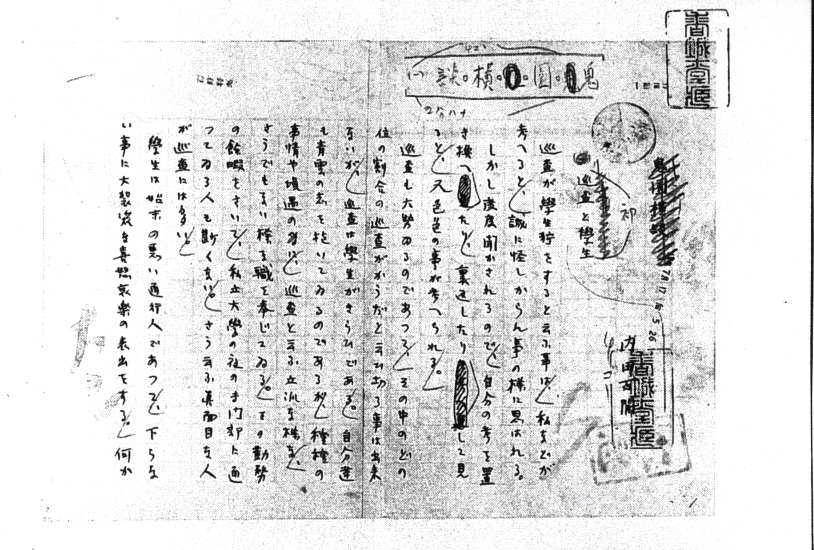 鬼・園・横・談
巡査と學生
内田百間
巡査が學生狩をすると云ふ事は、私などが
考へると、誠に怪しからん事の様に思はれる。
しかし度度聞かされるので、自分の考を置
き換へたり、裏返したりして見
ると、又色色の事が考へられる。
巡査も大勢ゐるのであつて、その中のどの
位の割合の巡査がかうだと云ひ切る事は出来
ないが、巡査は學生がきらひである。自分達
も青雲の志を抱いてゐるのであるが、種種の
事情や境遇の為に、巡査と云ふ立派な様な、
さうでもない様な職を奉じてゐる。その勤務
の餘暇をさいて、私立大學の夜の専門部に通
つてゐる人も尠くない。さう云ふ真面目な人
が巡査には多い。
學生は始末の悪い通行人であつて、下らな
い事に大袈裟な喜怒哀楽の表出をする。何か